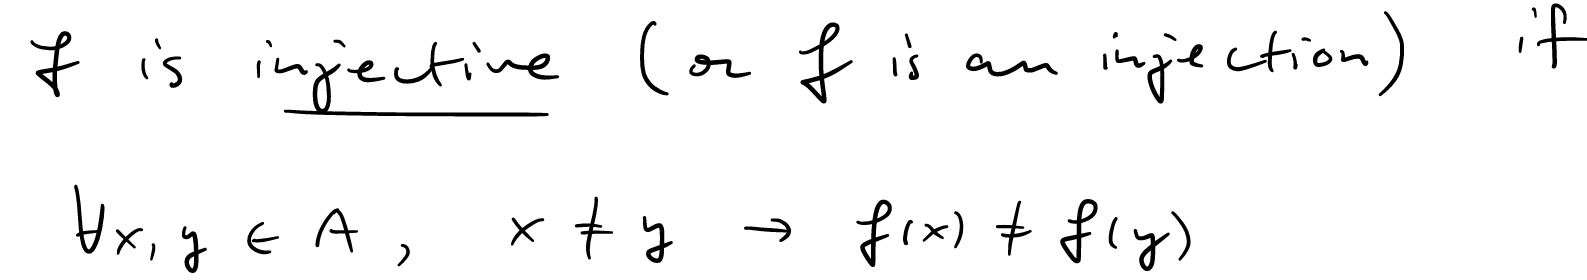 f is injective (or f is an injection) if
∀x, y ∈ A, x ≠ y → f(x) ≠ f(y)